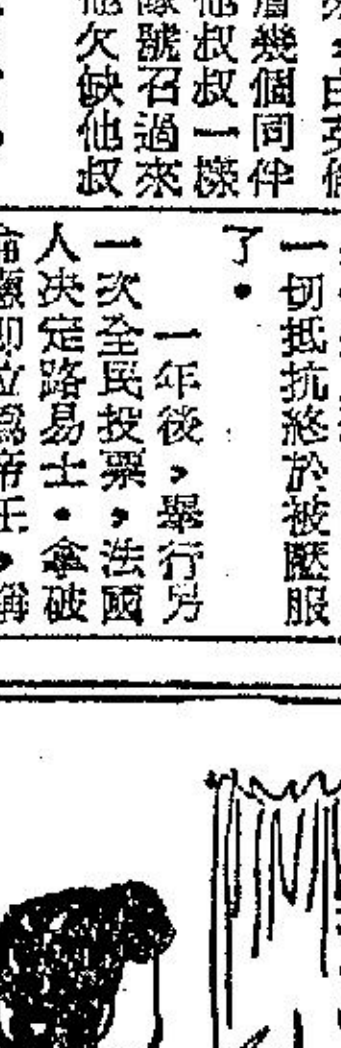 由英
幾個同伴
他叔叔一樣
號召過來
他欠缺他叔
一切抵抗終於被壓服
了。
一年後，舉行另
一次全民投票，法國
人决定路易士·拿破
崙應即位爲帝王，稱